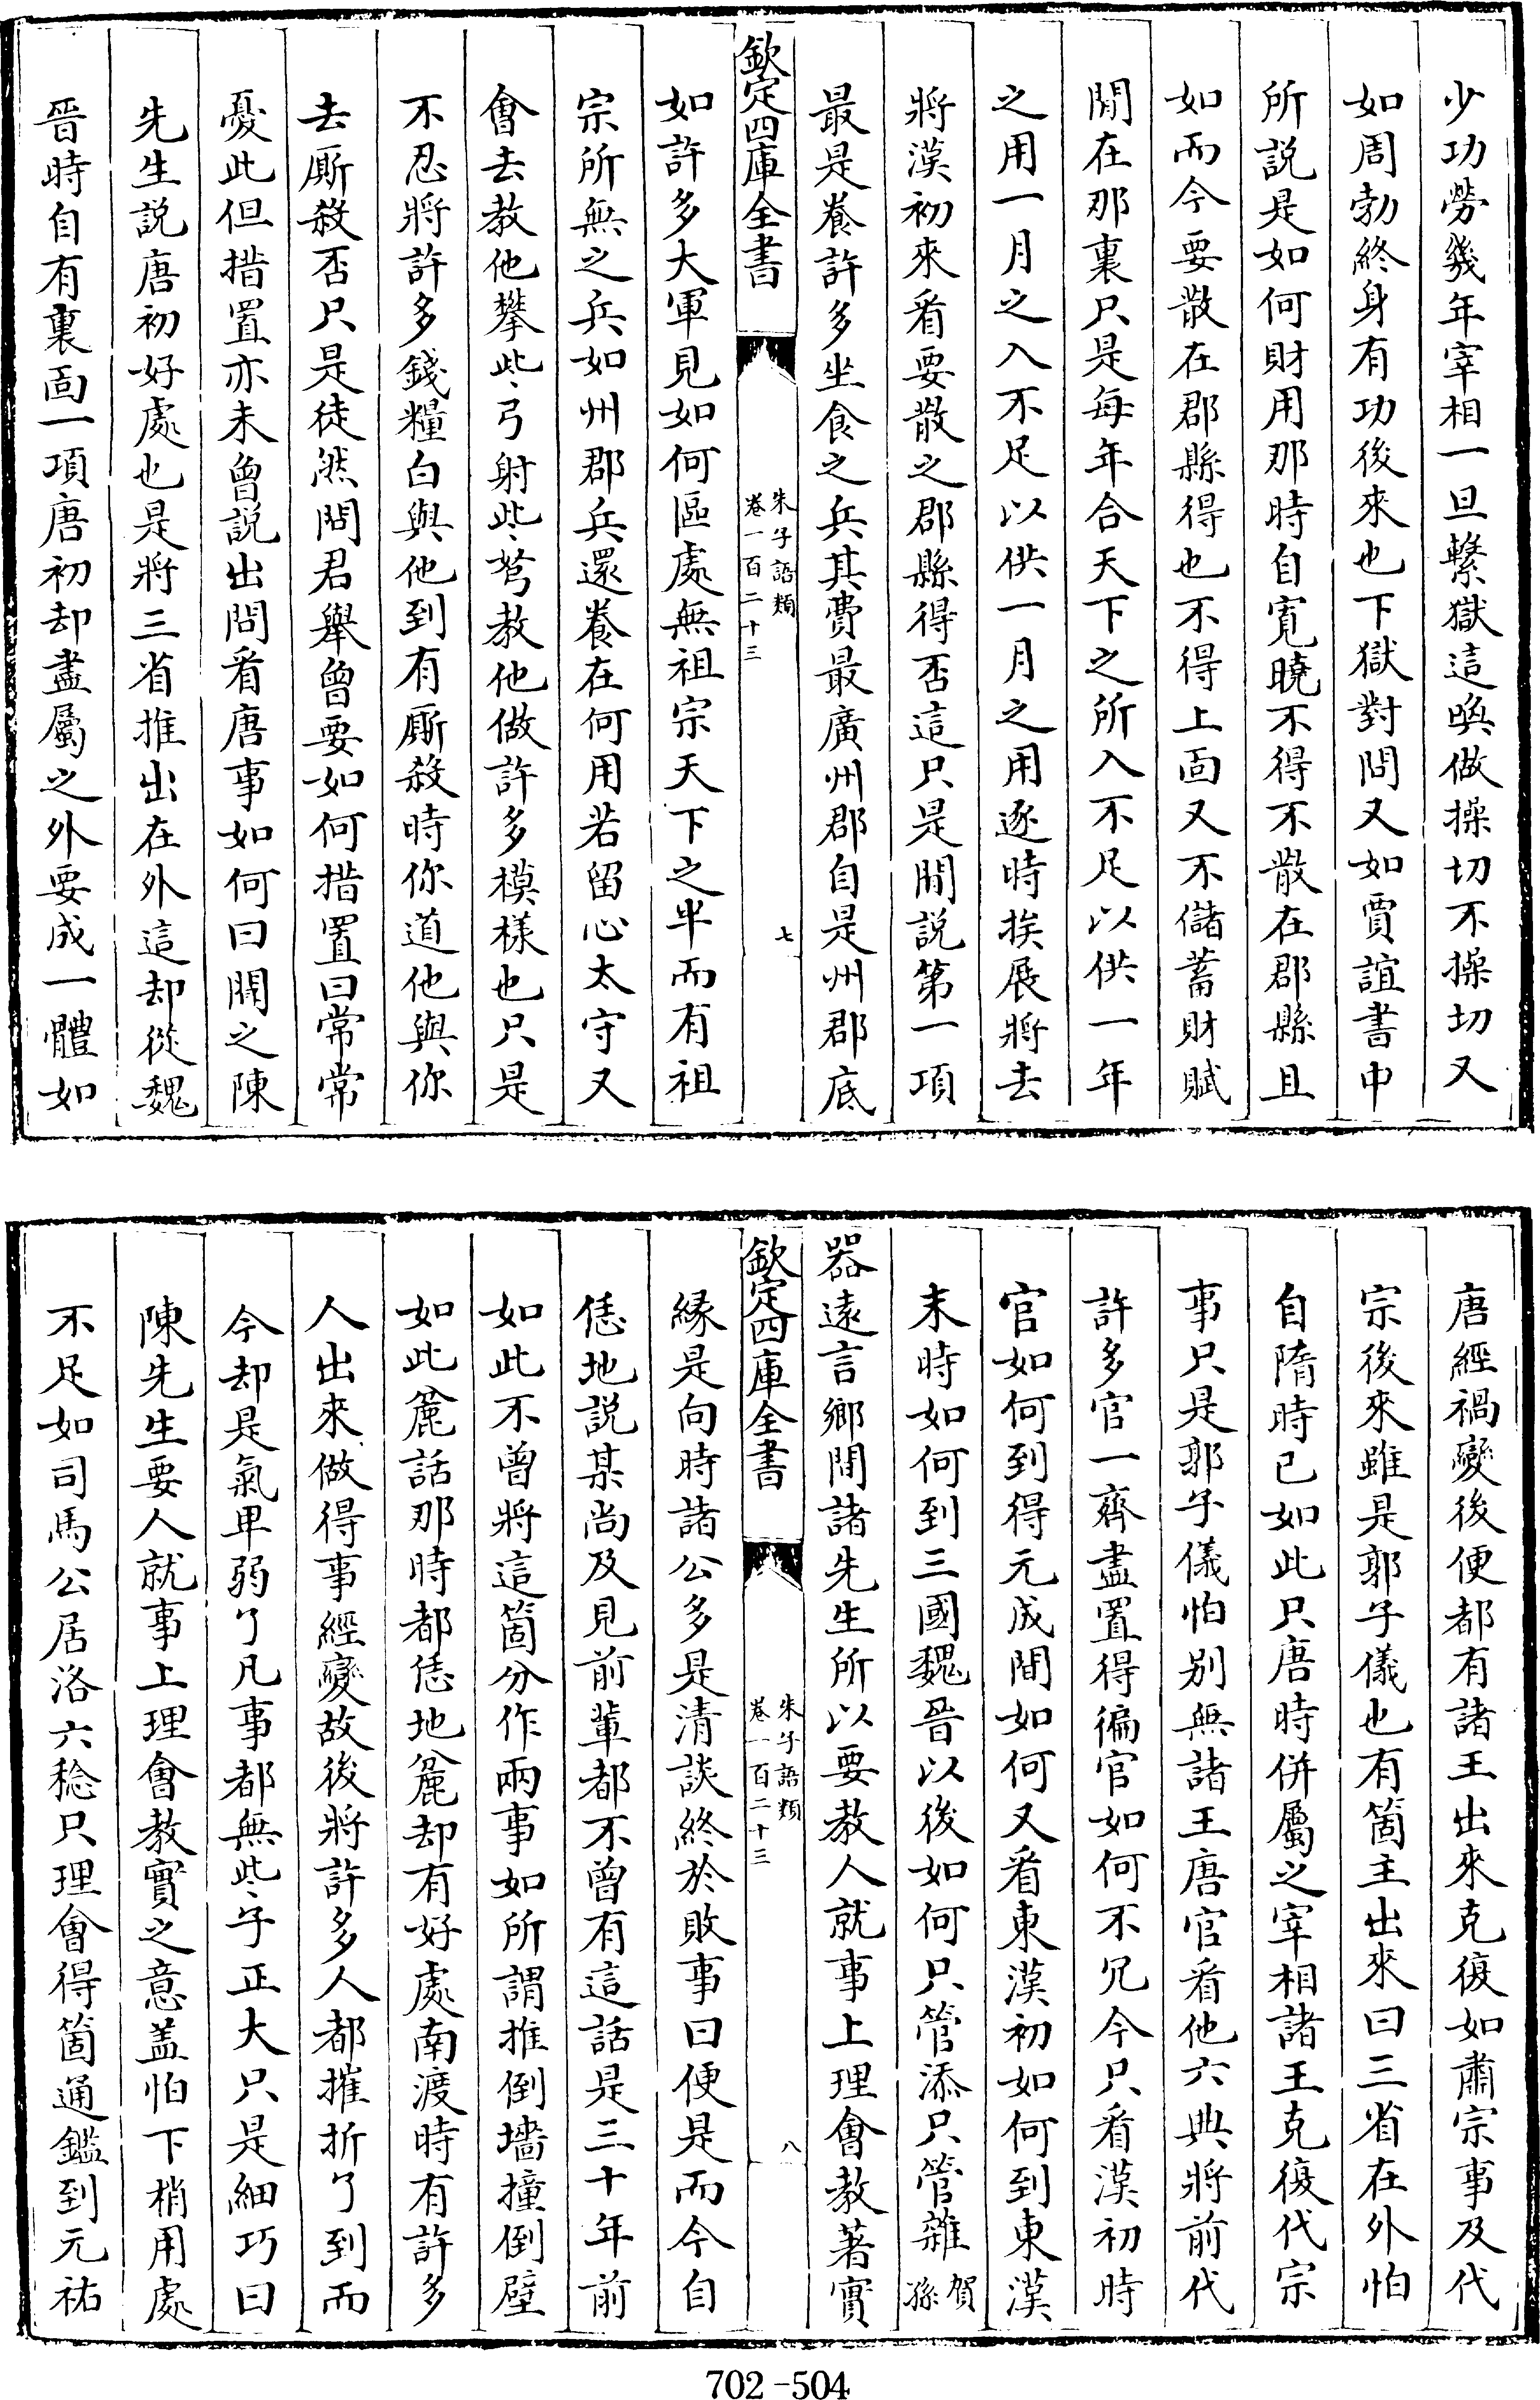 少功勞幾年宰相一旦繫獄這喚做操切不操切又
如周勃終身有功後來也下獄對問又如賈誼書中
所説是如何財用那時自寛曉不得不散在郡縣且
如而今要散在郡縣得也不得上面又不儲蓄財賦
閒在那裏只是每年合天下之所入不足以供一年
之用一月之入不足以供一月之用逐時挨展將去
將漢初來看要散之郡縣得否這只是閒説第一項
最是養許多坐食之兵其費最廣州郡自是州郡底
欽定四庫全書
朱子語類
卷一百二十三
七
如許多大軍見如何區處無祖宗天下之半而有祖
宗所無之兵如州郡兵還養在何用若留心太守又
會去教他攀些弓射些弩教他做許多模様也只是
不忍將許多錢糧白與他到有厮殺時你道他與你
去厮殺否只是徒然問君舉曾要如何措置曰常常
憂此但措置亦未曾説出問看唐事如何曰聞之陳
先生説唐初好處也是將三省推出在外這却從魏
晉時自有裏面一項唐初却盡屬之外要成一體如
唐經禍變後便都有諸王出來克復如肅宗事及代
宗後來雖是郭子儀也有箇主出來曰三省在外怕
自隋時已如此只唐時併屬之宰相諸王克復代宗
事只是郭子儀怕別無諸王唐官看他六典將前代
許多官一齊盡置得徧官如何不冗今只看漢初時
官如何到得元成間如何又看東漢初如何到東漢
末時如何到三國魏晉以後如何只管添只管雜賀孫
器逺言鄉閒諸先生所以要教人就事上理會教著實
欽定四庫全書
朱子語類
卷一百二十三
八
緣是向時諸公多是清談終於敗事曰便是而今自
恁地説某尚及見前輩都不曾有這話是三十年前
如此不曾將這箇分作兩事如所謂推倒墻撞倒壁
如此麄話那時都恁地麄却有好處南渡時有許多
人出來做得事經變故後將許多人都摧折了到而
今却是氣卑弱了凡事都無些子正大只是細巧曰
陳先生要人就事上理會教實之意盖怕下梢用處
不足如司馬公居洛六稔只理會得箇通鑑到元祐
702-504